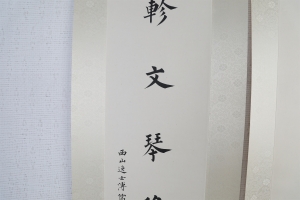 軫文琴
西山逸士傅